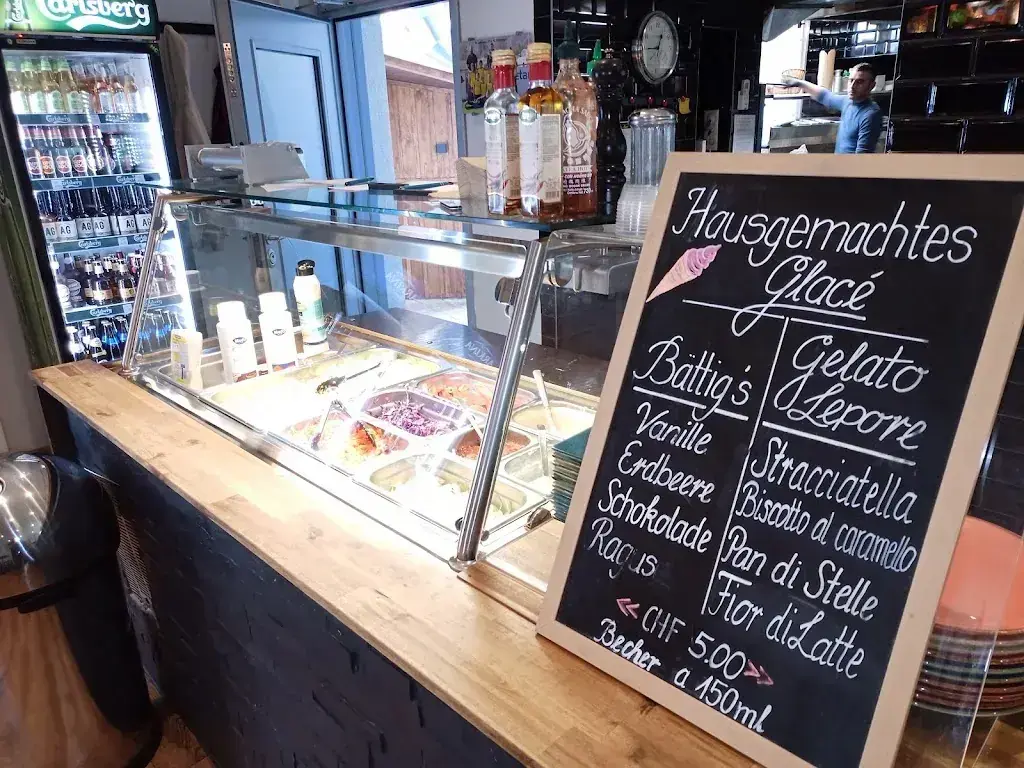 Carlsberg
Hausgemachtes
Glacé
Bättig's
Vanille
Erdbeere
Schokolade
Ragus
Gelato
Lepore
Stracciatella
Biscotto al caramello
Pan di Stelle
Fior di Latte
CHF 5.00
Becher a 150ml